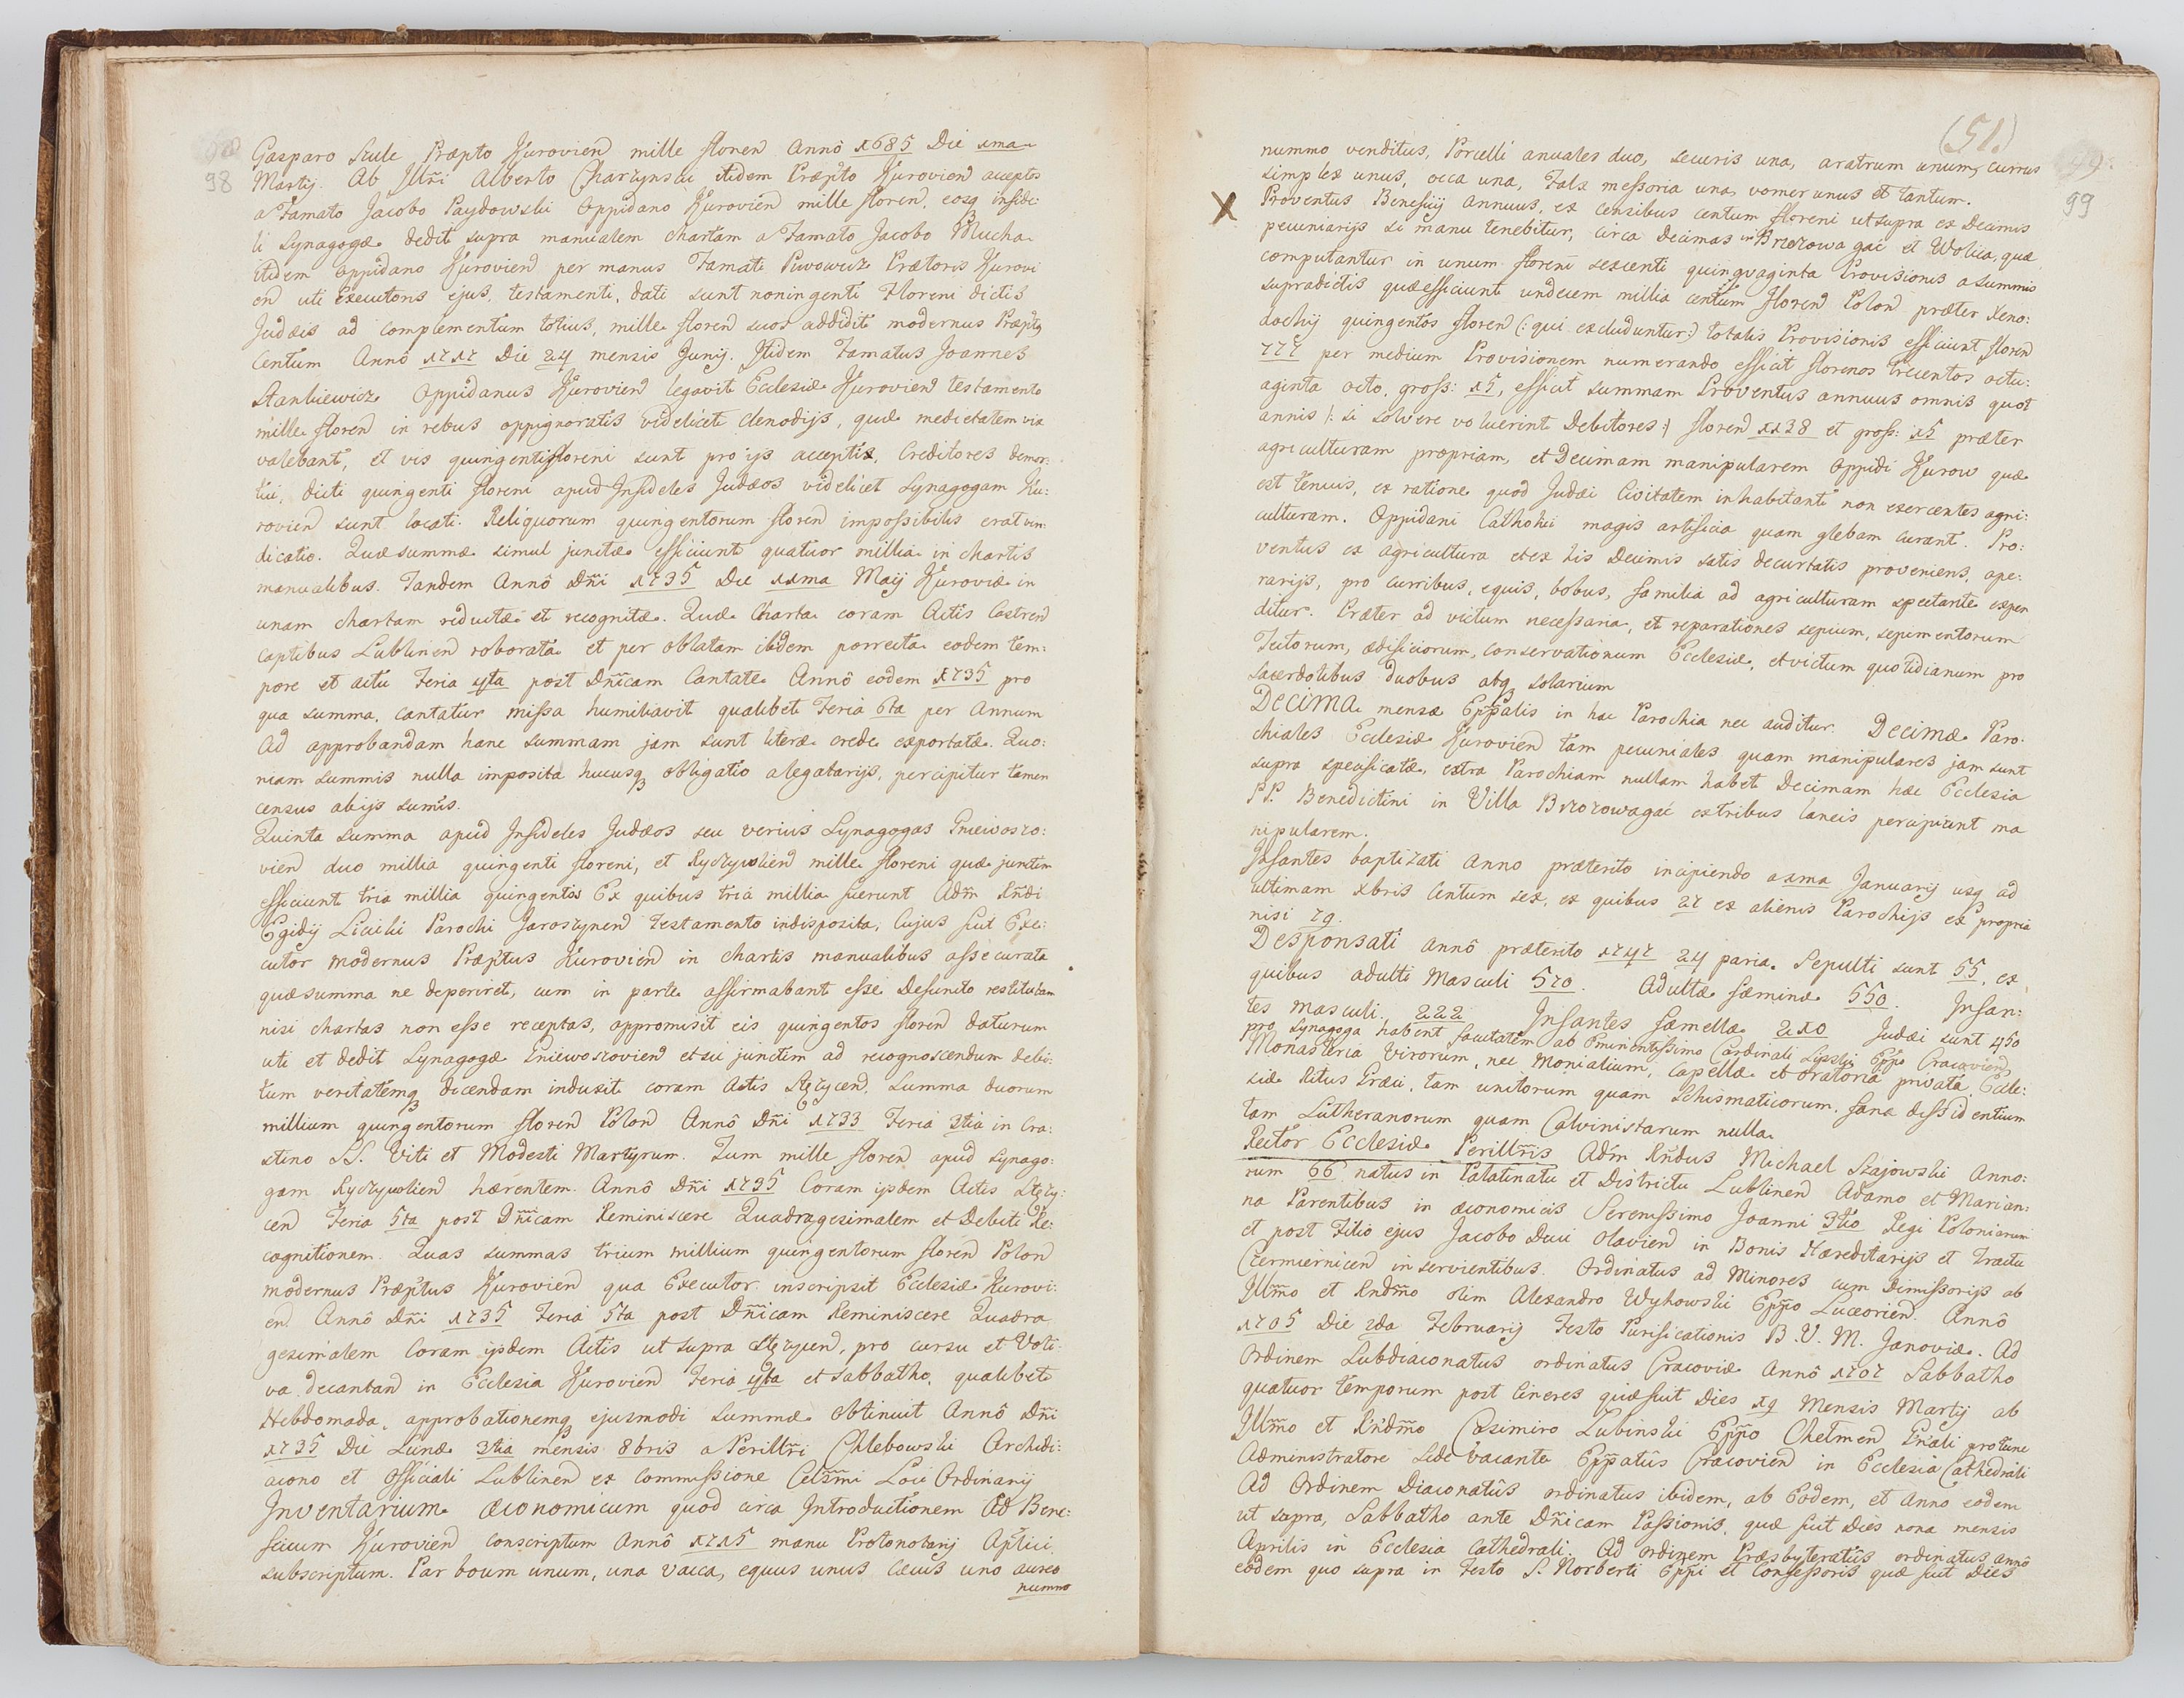 98
Gasparo Szulc Præpto Kurovien mille floren Annô 1685 Die 1ma
Martij. Ab Illri Alberto Charzynski itidem Præpto Kurovien acceptos
a Famato Jacobo Paydowski Oppidano Kurovien mille floren, eosq infide:
li Synagogæ dedit supra manualem chartam a Famato Jacobo Mucha
itidem oppidano Kurovien per manus Famati Piwowicz Prætoris Kurovi
en uti Executoris ejus, testamenti, dati sunt noningenti Floreni dictis
Judæis ad complementum totius, mille floren suos addidit modernus Præptq
Centum Annô 1717 Die 24 mensis Junij. Itidem Famatus Joannes
Stankiewicz Oppidanus Kurovien legavit Ecclesiæ Kurovien testamento
mille floren in rebus oppignoratis videlicet clenodijs, quæ medietatem vix
valebant, et vix quingenti floreni sunt pro ijs acceptis, Creditores demor
tui, dicti quingenti floreni apud Infideles Judæos videlicet Synagogam Ku:
rovien sunt locati. Reliquorum quingentorum floren impossibilis erat vin
dicatio. Quæ summæ simul junctæ efficiunt quatuor millia in chartis
manualibus. Tandem Annô Dñi 1735 Die 11ma Maij Kuroviæ in
unam chartam reductæ et recognitæ. Quæ Charta coram Actis Castren
captibus Lublinen roborata et per oblatam ibidem porrecta eodem tem:
pore et actu Feria 4ta post Dñicam Cantate Annô eodem 1735 pro
qua summa, cantatur missa humiliavit qualibet Feria 6ta per Annum
Ad approbandam hanc summam jam sunt literæ crede exportatæ. Quo:
niam summis nulla imposita hucusq obligatio a legatarijs, percipitur tamen
census ab ijs sumis.
Quinta summa apud Infideles Judæos seu verius Synagogas Gniewoszo:
vien duo millia quingenti floreni, et Ryczywolien mille floreni quæ junctim
efficiunt tria millia quingentos Ex quibus tria millia fuerunt Adm Rñdi
Egidij Licicki Parochi Jaroszynen Testamento indisposita, Cujus fuit Exe:
cutor modernus Præptus Kurovien in chartis manualibus assecurata
quæ summa ne deperiret, cum in parte affirmabant esse Defuncto restitutam
nisi chartas non esse receptas, appromisit eis quingentos floren daturum
uti et dedit Synagogæ Gniewoszovien et sic junctim ad recognoscendum debi:
tum veritatemq dicendam induxit coram Actis Stężycen. Summa duorum
millium quingentorum floren Polon Annô Dñi 1733 Feria 3tia in Cra:
stino SS. Viti et Modesti Martyrum. Tum mille floren apud Synago:
gam Ryczywolien hærentem Annô Dñi 1735 Coram ijsdem Actis Stęży:
cen Feria 5ta post Dñicam Reminiscere Quadragesimalem et Debiti Re:
cognitionem. Quas summas trium millium quingentorum floren Polon
modernus Præptus Kurovien qua Executor inscripsit Ecclesiæ Kurovi:
en Annô Dñi 1735 Feria 5ta post Dñicam Reminiscere Quadra
gesimalem Coram ijsdem Actis ut supra Stężycen, pro cursu et Voti:
va decantand in Ecclesia Kurovien Feria 4ta et Sabbatho, qualibet
Hebdomada, approbationemq ejusmodi summæ obtinuit Annô Dñi
1735 Die Lunæ 3tia mensis 8bris a Perillri Chlebowski Archidi:
acono et Officiali Lublinen ex Commissione Celsmi Loci Ordinarij
Inventarium œconomicum quod circa Introductionem Ad Bene:
ficium Kurovien conscriptum Annô 1715 manu Protonotarij Aptici
subscriptum. Par boum unum, una vacca, equus unus cæcus uno aureo
nummo
(51.)
99
nummo venditus, Porcelli anuales duo, securis una, aratrum unum, currus
simplex unus, occa una, Falx messoria una, vomer unus et tantum.
X
Proventus Beneficij annuus, ex censibus centum floreni ut supra ex Decimis
pecuniarijs si manu tenebitur, circa Decimas in Brzozowa gać et Wolica, quæ
computantur in unum floreni sexcenti quinquaginta Provisionis a summis
supradictis quæ efficiunt undecem millia centum Floren Polon præter Xeno:
dochij quingentos floren (: qui excluduntur:) totalis Provisionis efficiunt floren
777 per medium Provisionem numerando efficit florenos trecentos octu:
aginta octo, gross: 15, efficit summam Proventus annuus omnis quot
annis /: si solvere voluerint Debitores :/ floren 1138 et gross: 15 præter
agriculturam propriam, et Decimam manipularem Oppidi Kurow quæ
est tenuis, ex ratione quod Judæi Civitatem inhabitant non exercentes agri:
culturam. Oppidani Catholici magis artificia quam glebam curant. Pro:
ventus ex agricultura et ex his Decimis satis decurtatis proveniens, ope:
rarijs, pro curribus, equis, bobus, familia ad agriculturam spectante expen
ditur. Præter ad victum necessaria, et reparationes sepium, sepimentorum
Tectorum, ædificiorum, conservationum Ecclesiæ, et victum quotidianum pro
sacerdotibus duobus atq solarium
Decima mensæ Eppalis in hac Parochia nec auditur. Decimæ Paro:
chiales Ecclesiæ Kurovien tam pecuniales quam manipulares jam sunt
supra specificatæ, extra Parochiam nullam habet Decimam hæc Ecclesia
PP. Benedictini in Villa Brzozowagać ex tribus laneis percipiunt ma
nipularem.
Infantes baptizati Anno præterito incipiendo a 1ma Januarij usq ad
ultimam Xbris Centum sex, ex quibus 27 ex alienis Parochijs ex propria
nisi 79.
Desponsati annô præterito 1747 24 paria. Sepulti sunt 55, ex
quibus adulti Masculi 570. Adultæ fæminæ 550. Infan:
tes masculi, 222 Infantes fæmellæ 210 Judæi sunt 450
pro Synagoga habent facultatem ab Eminentissimo Cardinali Lipski Eppo Cracovien
Monasteria Virorum, nec Monialium, Capellæ et oratoria privata, Eccle:
siæ Ritus Græci, tam unitorum quam Schismaticorum. fana dissidentium
tam Lutheranorum quam Calvinistarum nulla.
Rector Ecclesiæ Perillris Adm Rñdus Michael Szajowski Anno:
rum 66 natus in Palatinatu et Districtu Lublinen Adamo et Marian:
na Parentibus in œconomicis Serenissimo Joanni 3tio Regi Poloniarum
et post Filio ejus Jacobo Duci Olavien in Bonis Hæreditarijs et Tractu
Czermiernicen inservientibus. Ordinatus ad Minores cum Dimissorijs ab
Illmo et Rndmo olim Alexandro Wyhowski Eppo Luceorien. Annô
1705 Die 2da Februarij Festo Purificationis B. V. M. Janoviæ. Ad
Ordinem Subdiaconatus ordinatus Cracoviæ Annô 1707 Sabbatho
quatuor temporum post Cineres quæ fuit Dies 19 Mensis Martij ab
Illmo et Rndmo Casimiro Lubinski Eppo Chelmen Gñali pro tunc
Administratore Sede vacante Eppatûs Cracovien in Ecclesia Cathedrali
Ad Ordinem Diaconatûs ordinatus ibidem, ab Eodem, et Anno eodem
ut supra, Sabbatho ante Dñicam Passionis, quæ fuit Dies nona mensis
Aprilis in Ecclesia Cathedrali. Ad ordinem Præsbyteratûs ordinatus annô
eôdem quo supra in Festo S. Norberti Eppi et Confessoris quæ fuit Dies